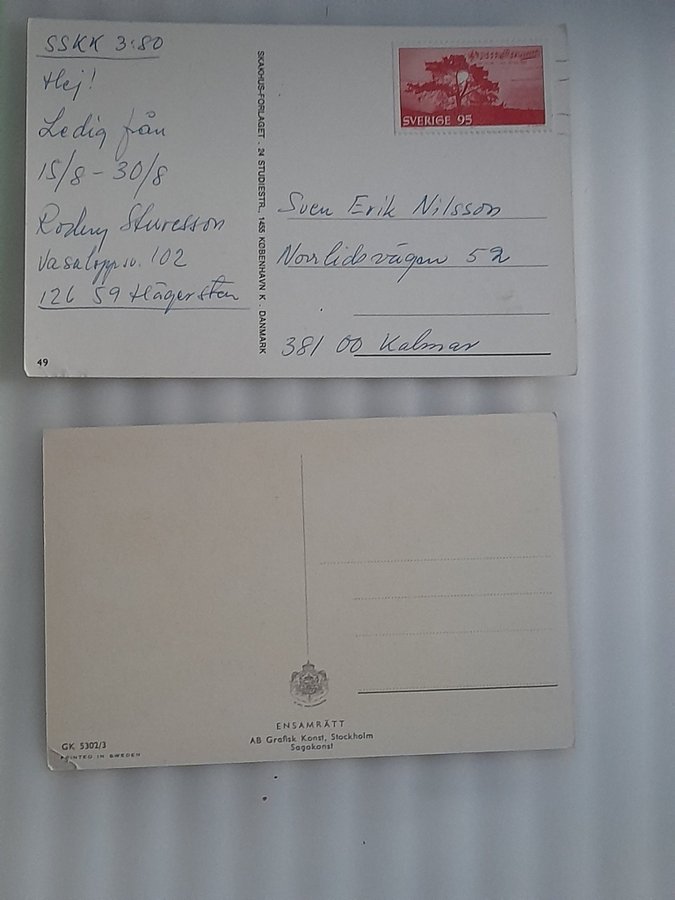 SSKK 3:80
Hej!
Ledig från
15/8 - 30/8
Rodny Sturesson
Vasaloppsv. 102
126 59 Hägersten
49
SKAKHUS-FORLAGET . 24 STUDIESTR., 1455 KØBENHAVN K . DANMARK
SVERIGE 95
Sven Erik Nilsson
Norrlidsvägen 52
381 00 Kalmar
ENSAMRÄTT
AB Grafisk Konst, Stockholm
Sagokonst
GK 5302/3
PRINTED IN SWEDEN